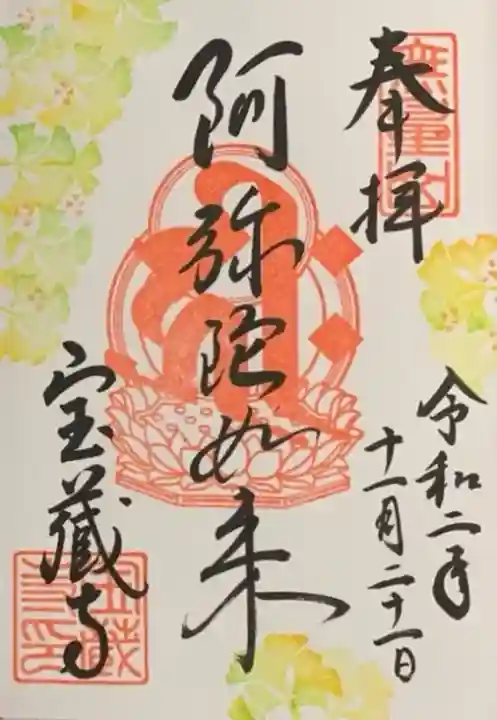 奉拝
令和二年
十一月二十一日
阿弥陀如来
宝蔵寺